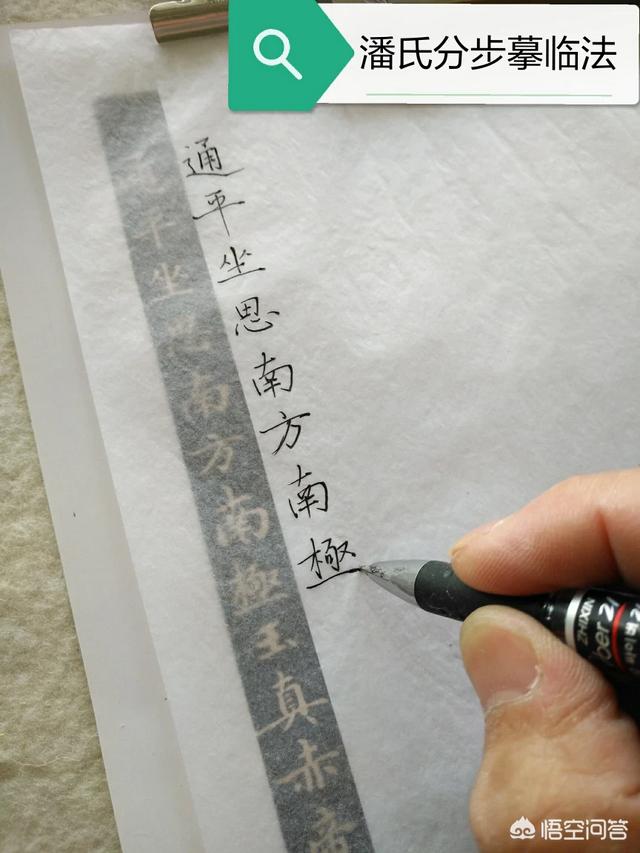 潘氏分步摹临法
通平坐思南方南極
平坐思南方南極玉真赤帝
ZHIXIN
悟空问答